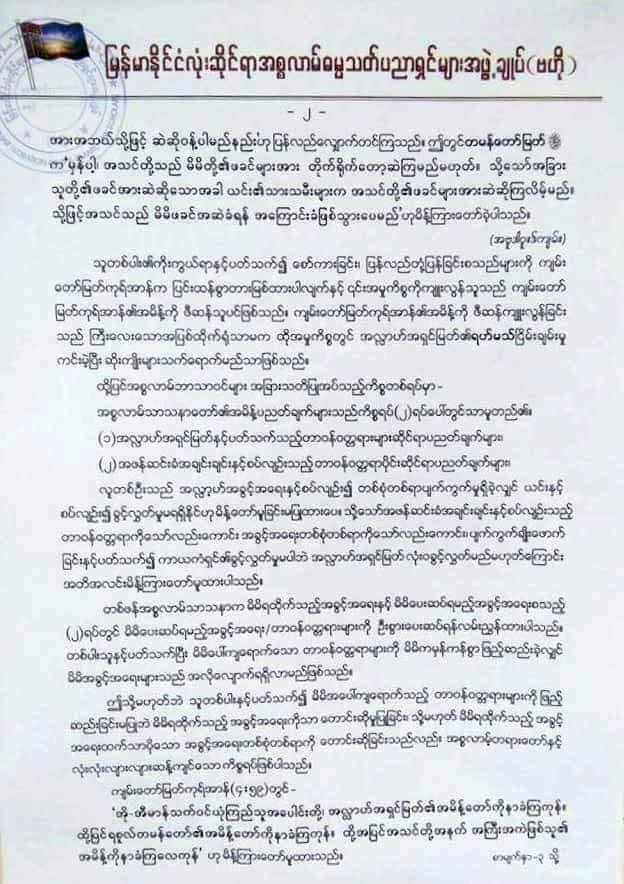 မြန်မာနိုင်ငံလုံးဆိုင်ရာအစ္စလာမ်ဓမ္မသတ်ပညာရှင်များအဖွဲ့ချုပ်(ဗဟို)
- ၂ -
အားအဘယ်သို့ဖြင့် ဆဲဆိုဝန့်ပါမည်နည်း'ဟု ပြန်လည်လျှောက်တင်ကြသည်။ ဤတွင်တမန်တော်မြတ် ﷺ
က'မှန်ပါ့၊ အသင်တို့သည် မိမိတို့၏ဖခင်များအား တိုက်ရိုက်တော့ဆဲကြမည်မဟုတ်။ သို့သော်အခြား
သူတို့၏ဖခင်အားဆဲဆိုသောအခါ ယင်း၏သားသမီးများက အသင်တို့၏ဖခင်များအားဆဲဆိုကြလိမ့်မည်။
သို့ဖြင့်အသင်သည် မိမိဖခင်အဆဲခံရန် အကြောင်းခံဖြစ်သွားပေမည်'ဟုမိန့်ကြားတော်ခဲ့ပါသည်။
(အဗူဒါဝူးဒ်ကျမ်း)
သူတစ်ပါး၏ကိုးကွယ်ရာနှင့်ပတ်သက်၍ စော်ကားခြင်း၊ ပြန်လည်တုံ့ပြန်ခြင်းစသည်များကို ကျမ်း
တော်မြတ်ကုရ်အာန်က ပြင်းထန်စွာတားမြစ်ထားပါလျက်နှင့် ၎င်းအမှုကိစ္စကိုကျူးလွန်သူသည် ကျမ်းတော်
မြတ်ကုရ်အာန်၏အမိန့်ကို ဖီဆန်သူပင်ဖြစ်သည်။ ကျမ်းတော်မြတ်ကုရ်အာန်၏အမိန့်ကို ဖီဆန်ကျူးလွန်ခြင်း
သည် ကြီးလေးသောအပြစ်ထိုက်ရုံသာမက ထိုအမှုကိစ္စတွင် အလ္လာဟ်အရှင်မြတ်၏ရဟ်မသ်ငြိမ်းချမ်းမှု
ကင်းမဲ့ပြီး ဆိုးကျိုးများသက်ရောက်မည်သာဖြစ်သည်။
ထို့ပြင်အစ္စလာမ်ဘာသာဝင်များ အခြားသတိပြုအပ်သည့်ကိစ္စတစ်ရပ်မှာ -
အစ္စလာမ်သာသနာတော်၏အမိန့်ပညတ်ချက်များသည်ကိစ္စရပ်(၂)ရပ်ပေါ်တွင်သာမူတည်၏။
(၁)အလ္လာဟ်အရှင်မြတ်နှင့်ပတ်သက်သည့်တာဝန်ဝတ္တရားများဆိုင်ရာပညတ်ချက်များ၊
(၂)အဖန်ဆင်းခံအချင်းချင်းနှင့်စပ်လျဉ်းသည့်တာဝန်ဝတ္တရာပိုင်းဆိုင်ရာပညတ်ချက်များ၊
လူတစ်ဦးသည် အလ္လာ့ဟ်အခွင့်အရေးနှင့်စပ်လျဉ်း၍ တစ်စုံတစ်ရာပျက်ကွက်မှုရှိခဲ့လျှင် ယင်းနှင့်
စပ်လျဉ်း၍ ခွင့်လွှတ်မှုမရရှိနိုင်ဟုမိန့်တော်မူခြင်းမပြုထားပေ။ သို့သော်အဖန်ဆင်းခံအချင်းချင်းနှင့်စပ်လျဉ်းသည့်
တာဝန်ဝတ္တရာကိုသော်လည်းကောင်း အခွင့်အရေးတစ်စုံတစ်ရာကိုသော်လည်းကောင်း၊ ပျက်ကွက်ချိုးဖောက်
ခြင်းနှင့်ပတ်သက်၍ ကာယကံရှင်၏ခွင့်လွှတ်မှုမပါဘဲ အလ္လာဟ်အရှင်မြတ် လုံးဝခွင့်လွှတ်မည်မဟုတ်ကြောင်း
အတိအလင်းမိန့်ကြားတော်မူထားပါသည်။
တစ်ဖန်အစ္စလာမ်သာသနာက မိမိရထိုက်သည့်အခွင့်အရေးနှင့် မိမိပေးဆပ်ရမည့်အခွင့်အရေးစသည့်
(၂)ရပ်တွင် မိမိပေးဆပ်ရမည့်အခွင့်အရေး/တာဝန်ဝတ္တရားများကို ဦးစွာပေးဆပ်ရန်လမ်းညွှန်ထားပါသည်။
တစ်ပါးသူနှင့်ပတ်သက်ပြီး မိမိပေါ်ကျရောက်သော တာဝန်ဝတ္တရားများကို မိမိကမှန်ကန်စွာ ဖြည့်ဆည်းခဲ့လျှင်
မိမိအခွင့်အရေးများသည် အလိုလျောက်ရရှိလာမည်ဖြစ်သည်။
ဤသို့မဟုတ်ဘဲ သူတစ်ပါးနှင့်ပတ်သက်၍ မိမိအပေါ်ကျရောက်သည့် တာဝန်ဝတ္တရားများကို ဖြည့်
ဆည်းခြင်းမပြုဘဲ မိမိရထိုက်သည့် အခွင့်အရေးကိုသာ တောင်းဆိုမှုပြုခြင်း၊ သို့မဟုတ် မိမိရထိုက်သည့် အခွင့်
အရေးထက်သာပိုသော အခွင့်အရေးတစ်စုံတစ်ရာကို တောင်းဆိုခြင်းသည်လည်း အစ္စလာမ့်တရားတော်နှင့်
လုံးလုံးလျားလျားဆန့်ကျင်သော ကိစ္စရပ်ဖြစ်ပါသည်။
ကျမ်းတော်မြတ်ကုရ်အာန်(၄း၅၉)တွင် -
'အို-အီမာန်သက်ဝင်ယုံကြည်သူအပေါင်းတို့၊ အလ္လာဟ်အရှင်မြတ်၏အမိန့်တော်ကိုနာခံကြကုန်။
ထို့ပြင်ရစူလ်တမန်တော်၏အမိန့်တော်ကိုနာခံကြကုန်။ ထို့အပြင်အသင်တို့အနက် အကြီးအကဲဖြစ်သူ၏
အမိန့်ကိုနာခံကြလေကုန်' ဟု မိန့်ကြားတော်မူထားသည်။
စာမျက်နှာ-၃ သို့